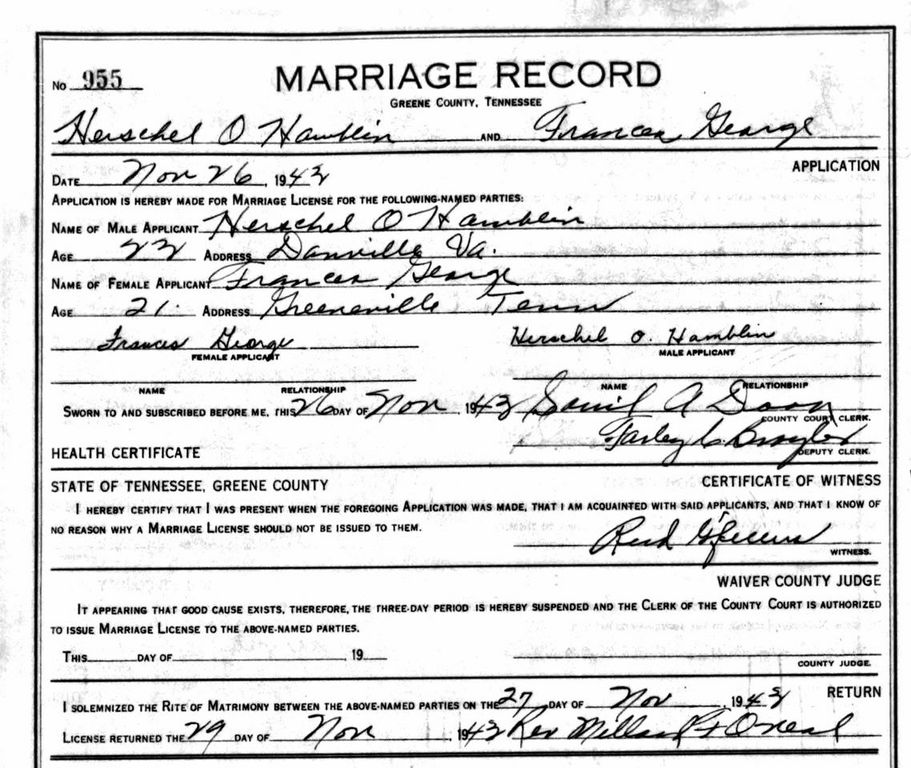 No 955 MARRIAGE RECORD
GREENE COUNTY, TENNESSEE
Herschel O Hamblin AND Frances George
APPLICATION
DATE Nov 26, 1943
APPLICATION IS HEREBY MADE FOR MARRIAGE LICENSE FOR THE FOLLOWING-NAMED PARTIES:
NAME OF MALE APPLICANT Herschel O Hamblin
AGE 22 ADDRESS Danville Va.
NAME OF FEMALE APPLICANT Frances George
AGE 21. ADDRESS Greeneville Tenn
Frances George Herschel O. Hamblin
FEMALE APPLICANT MALE APPLICANT
NAME RELATIONSHIP NAME RELATIONSHIP
SWORN TO AND SUBSCRIBED BEFORE ME, THIS 26 DAY OF Nov 1943 A
COUNTY COURT CLERK.
DEPUTY CLERK.
HEALTH CERTIFICATE
STATE OF TENNESSEE, GREENE COUNTY CERTIFICATE OF WITNESS
I HEREBY CERTIFY THAT I WAS PRESENT WHEN THE FOREGOING APPLICATION WAS MADE, THAT I AM ACQUAINTED WITH SAID APPLICANTS, AND THAT I KNOW OF
NO REASON WHY A MARRIAGE LICENSE SHOULD NOT BE ISSUED TO THEM.
WITNESS.
WAIVER COUNTY JUDGE
IT APPEARING THAT GOOD CAUSE EXISTS, THEREFORE, THE THREE-DAY PERIOD IS HEREBY SUSPENDED AND THE CLERK OF THE COUNTY COURT IS AUTHORIZED
TO ISSUE MARRIAGE LICENSE TO THE ABOVE-NAMED PARTIES.
THIS DAY OF , 19
COUNTY JUDGE.
RETURN
I SOLEMNIZED THE RITE OF MATRIMONY BETWEEN THE ABOVE-NAMED PARTIES ON THE 27 DAY OF Nov, 1943
LICENSE RETURNED THE 29 DAY OF Nov, 1943 Rev Millard F O'neal